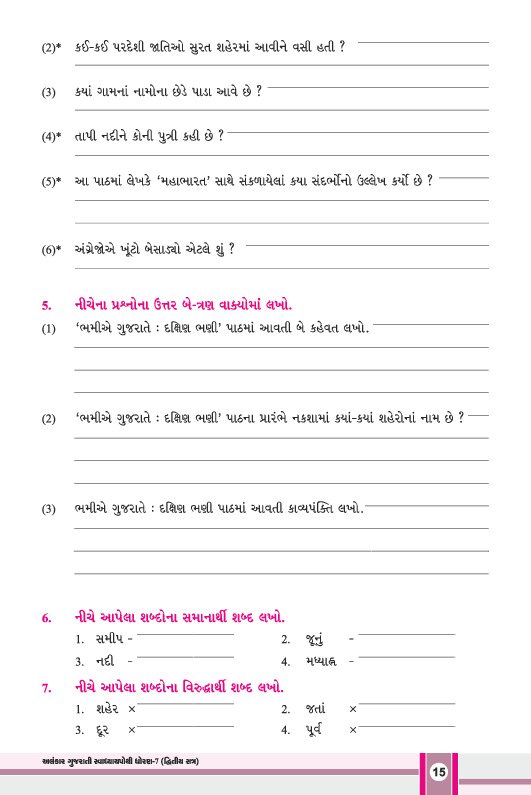 (2)* કઈ-કઈ પરદેશી જાતિઓ સુરત શહેરમાં આવીને વસી હતી ?
(3) ક્યાં ગામનાં નામોના છેડે પાડા આવે છે ?
(4)* તાપી નદીને કોની પુત્રી કહી છે ?
(5)* આ પાઠમાં લેખકે ‘મહાભારત’ સાથે સંકળાયેલાં કયા સંદર્ભોનો ઉલ્લેખ કર્યો છે ?
(6)* અંગ્રેજોએ ખૂંટો બેસાડ્યો એટલે શું ?
5. નીચેના પ્રશ્નોના ઉત્તર બે-ત્રણ વાક્યોમાં લખો.
(1) ‘ભમીએ ગુજરાતે : દક્ષિણ ભણી’ પાઠમાં આવતી બે કહેવત લખો.
(2) ‘ભમીએ ગુજરાતે : દક્ષિણ ભણી’ પાઠના પ્રારંભે નકશામાં ક્યાં-ક્યાં શહેરોનાં નામ છે ?
(3) ભમીએ ગુજરાતે : દક્ષિણ ભણી પાઠમાં આવતી કાવ્યપંક્તિ લખો.
6. નીચે આપેલા શબ્દોના સમાનાર્થી શબ્દ લખો.
1. સમીપ - 2. જૂનું -
3. નદી - 4. મધ્યાહ્ન -
7. નીચે આપેલા શબ્દોના વિરુદ્ધાર્થી શબ્દ લખો.
1. શહેર × 2. જતાં ×
3. દૂર × 4. પૂર્વ ×
અલંકાર ગુજરાતી સ્વાધ્યાયપોથી ધોરણ-7 (દ્વિતીય સત્ર) 15